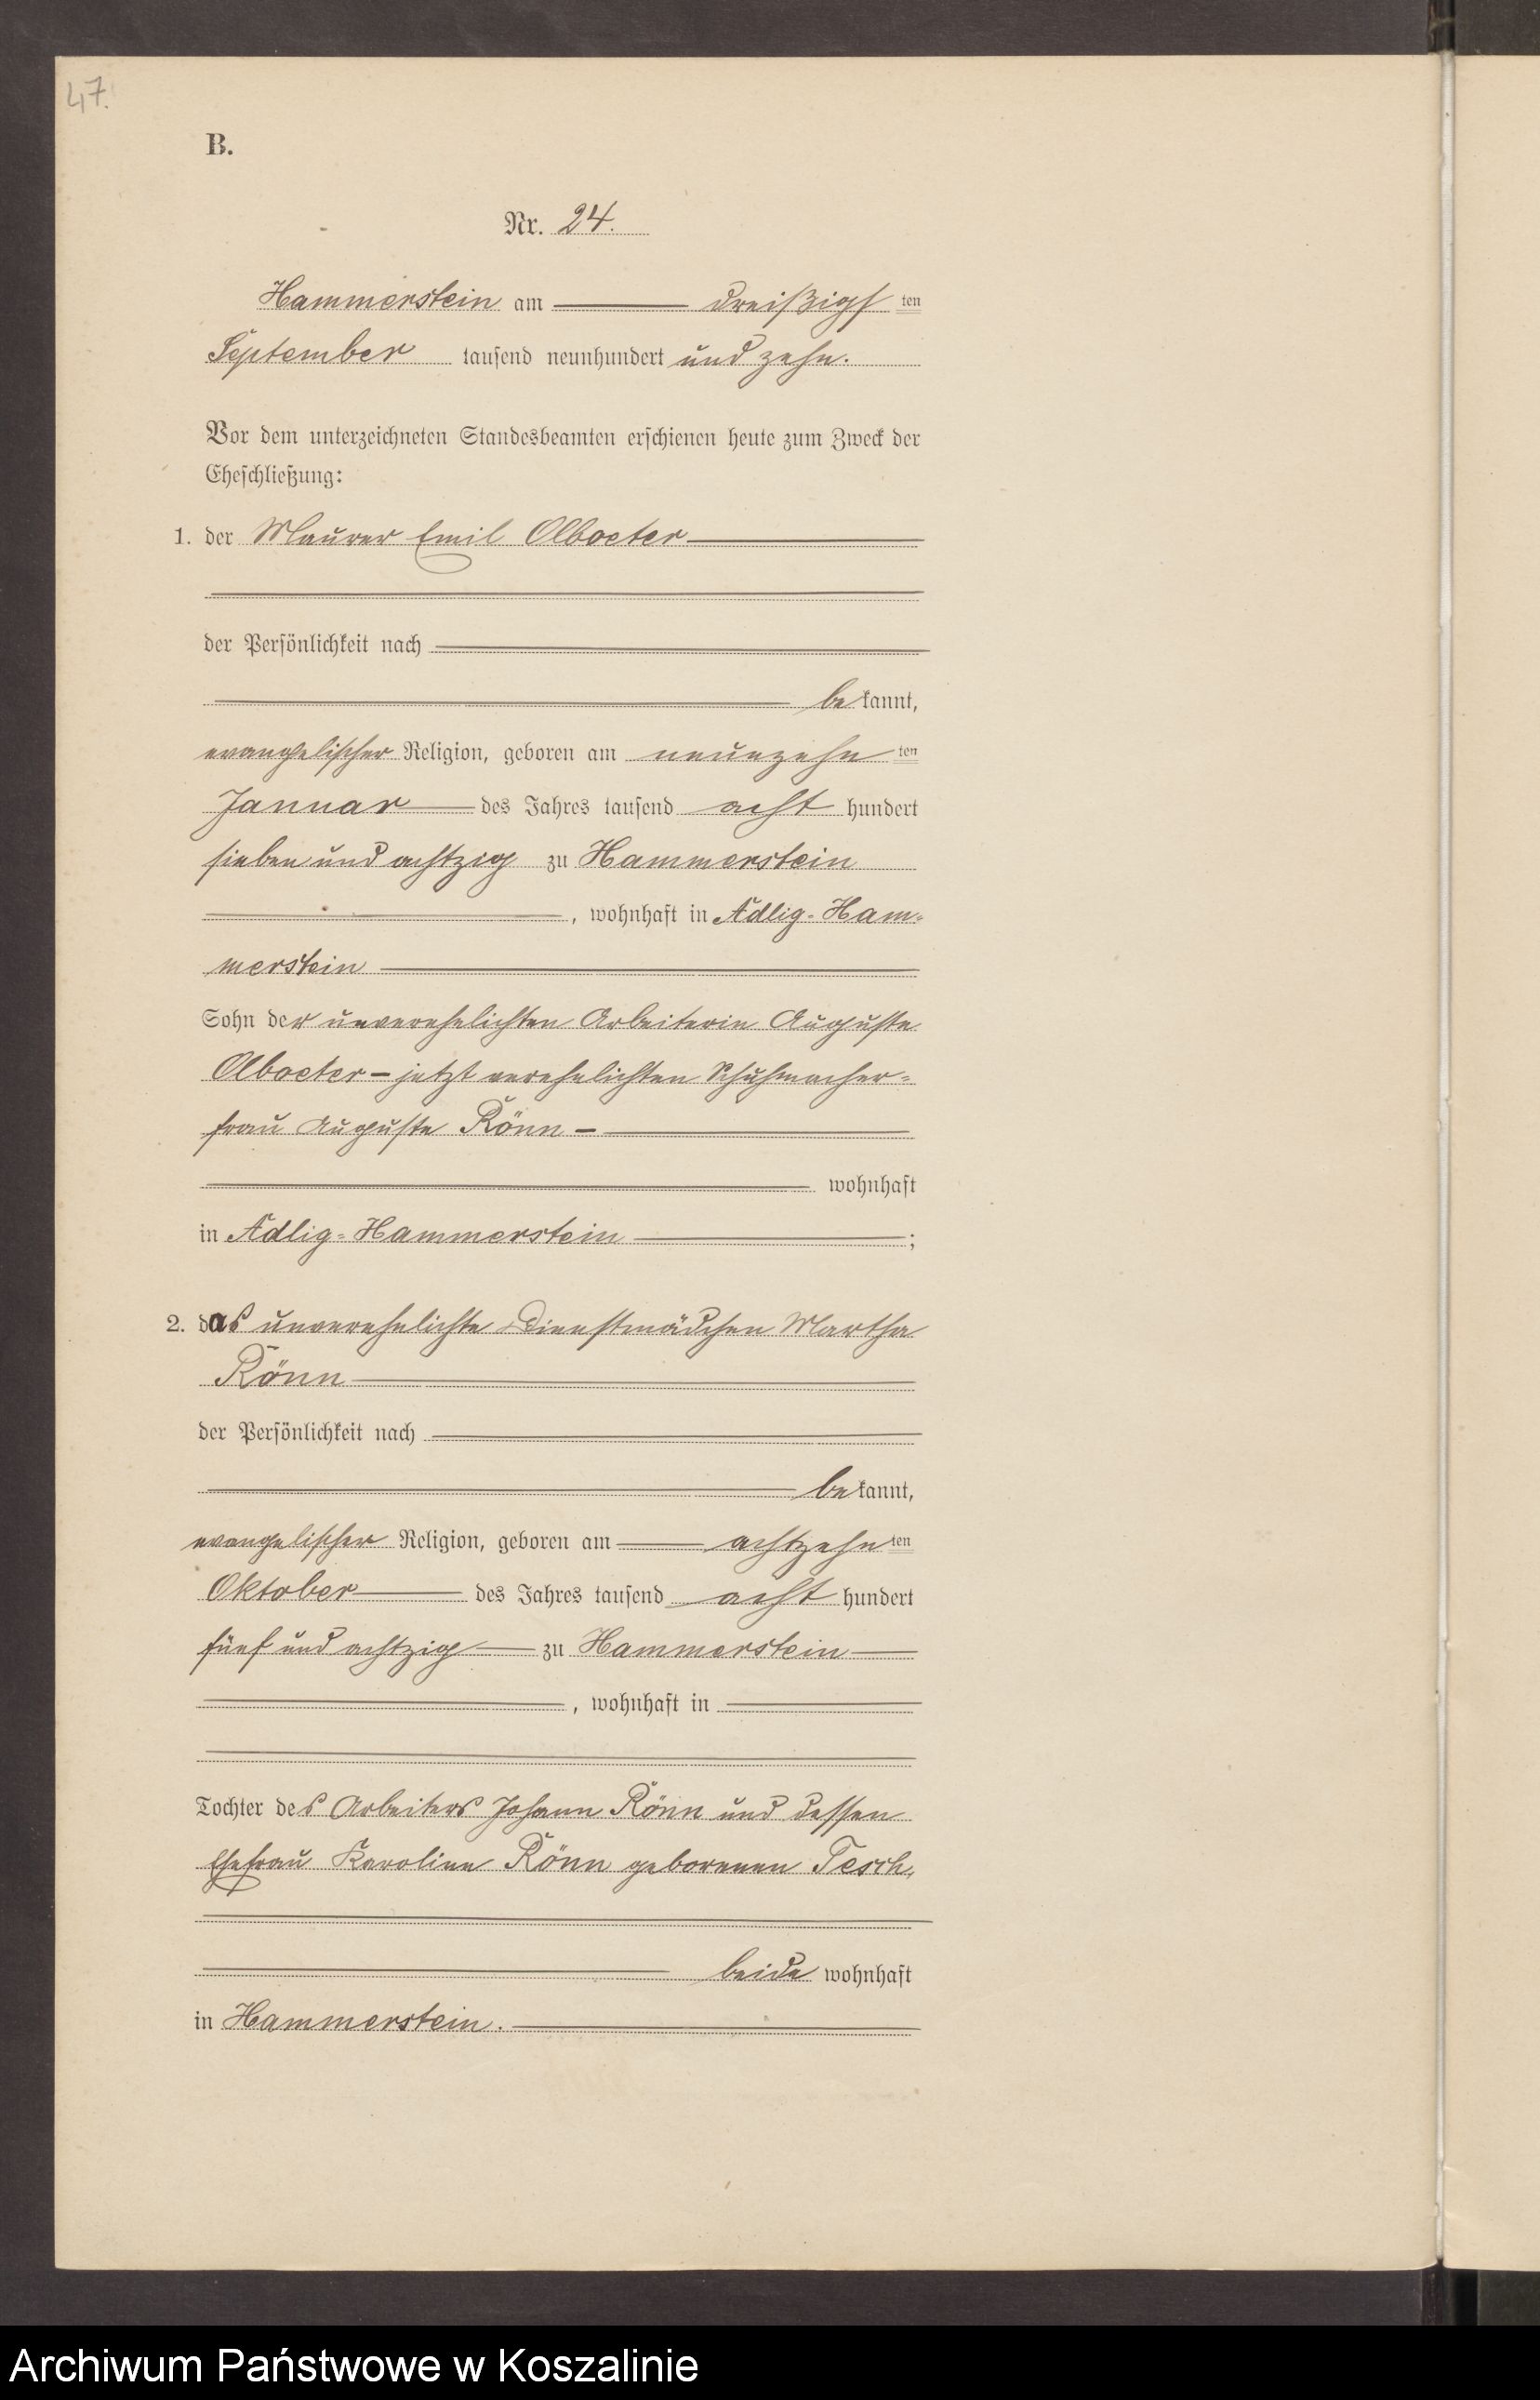 47.
B.
Nr. 24.
Hammerstein am dreißigsten
September tausend neunhundert und zehn.
Vor dem unterzeichneten Standesbeamten erschienen heute zum Zweck der
Eheschließung:
1. der Maurer Emil Olboeter
der Persönlichkeit nach
bekannt,
evangelischer Religion, geboren am neunzehnten
Januar des Jahres tausend acht hundert
sieben und achtzig zu Hammerstein
, wohnhaft in Adlig-Ham-
merstein
Sohn der unverehelichten Arbeiterin Auguste
Olboeter - jetzt verehelichten Schuhmacher-
frau Auguste Rönn -
wohnhaft
in Adlig-Hammerstein;
2. das unverehelichte Dienstmädchen Martha
Rönn
der Persönlichkeit nach
bekannt,
evangelischer Religion, geboren am achtzehnten
Oktober des Jahres tausend acht hundert
fünf und achtzig zu Hammerstein
, wohnhaft in
Tochter des Arbeiters Johann Rönn und dessen
Ehefrau Karoline Rönn geborenen Tesch,
beide wohnhaft
in Hammerstein.
Archiwum Państwowe w Koszalinie